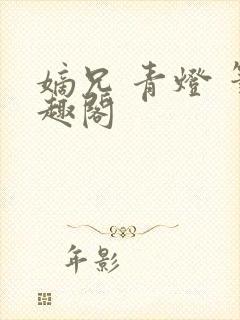 嫡兄 青燈
趣閣
年影